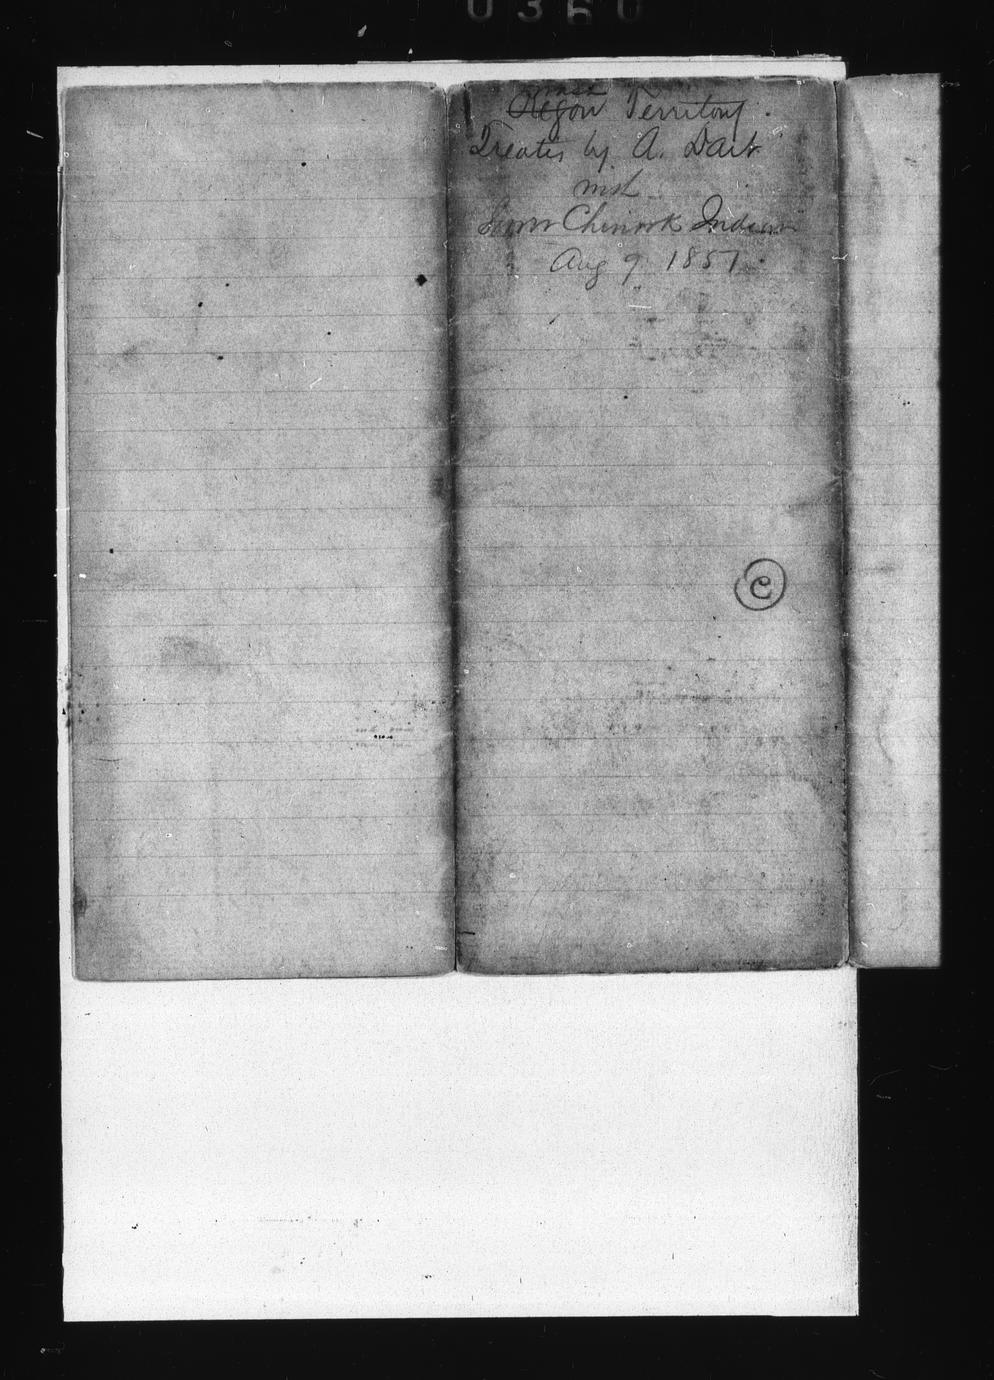 0360
Wash
Oregon Territory.
Treates by A. Dart
with
Lower Chinook Indians
Aug 9 1851.
C